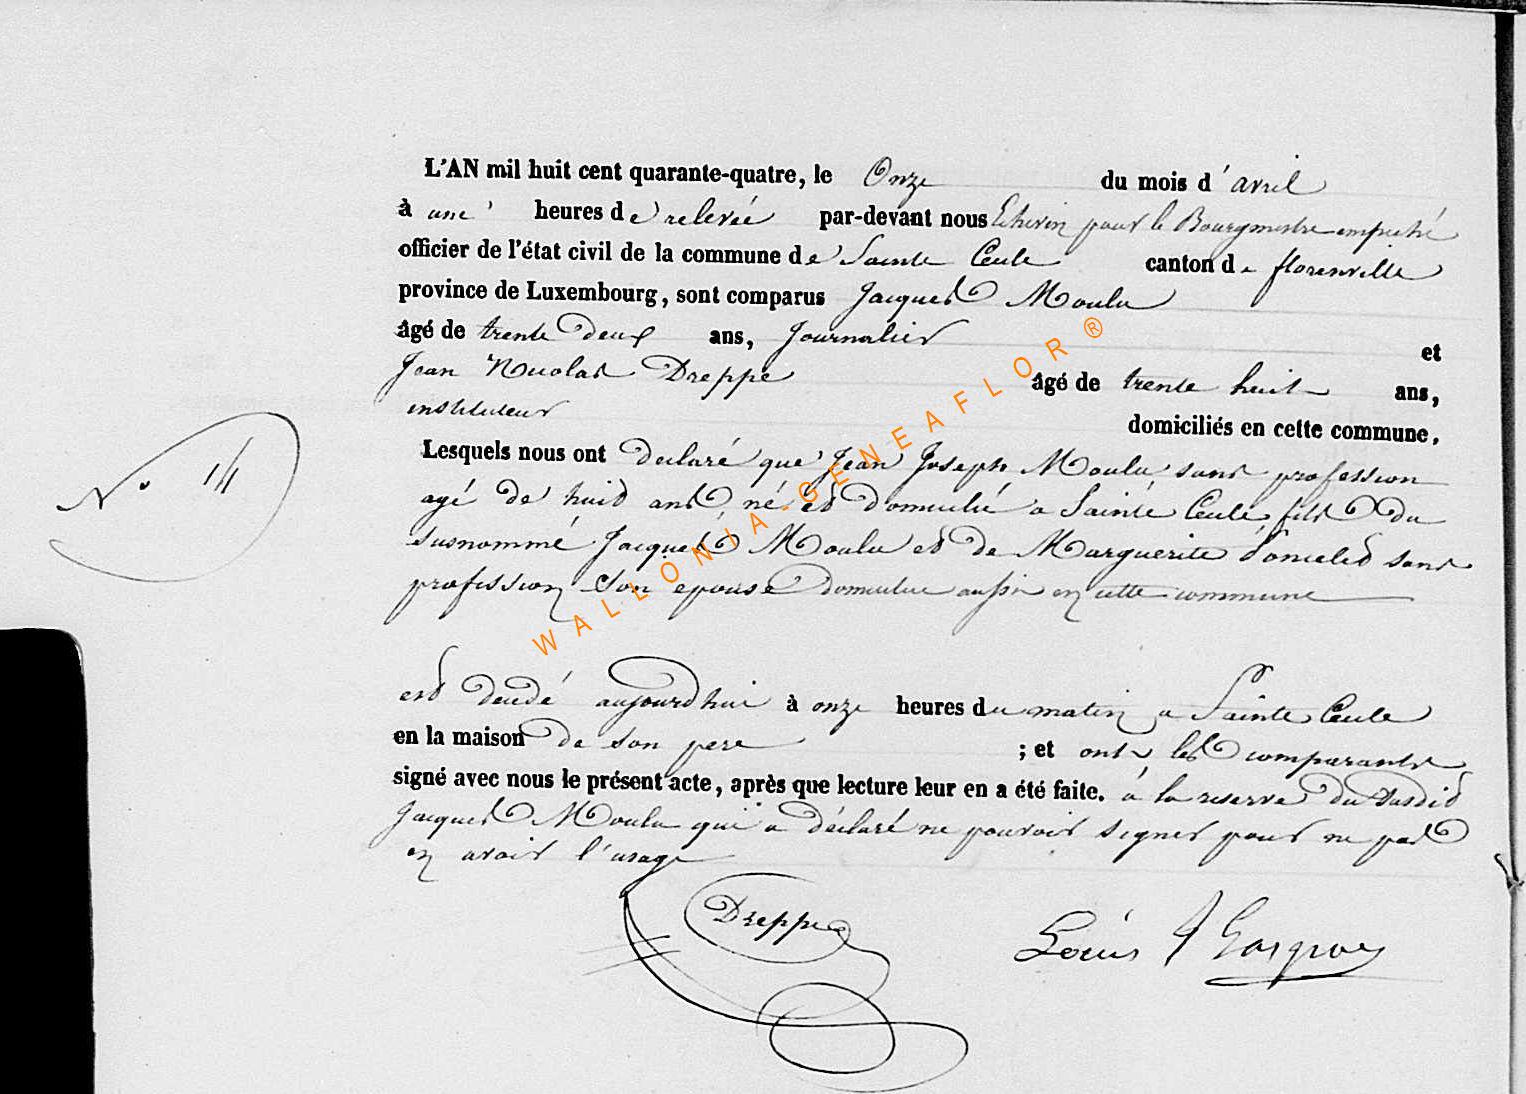 L'AN mil huit cent quarante-quatre, le Onze du mois d'avril
à une heures de relevée par-devant nous Echevin pour le Bourgmestre empeché
officier de l'état civil de la commune de Sainte Cecile canton de florenville
province de Luxembourg, sont comparus Jacques Moulu
âgé de trente deux ans, Journalier et
Jean Nicolas Dreppe âgé de trente huit ans,
instituteur domiciliés en cette commune.
Lesquels nous ont declaré que Jean Joseph Moulu sans profession
N° 14
agé de huit ans né et domicilié a Sainte Cecile, fils Du
susnommé Jacques Moulu et de Marguerite sans
profession Son epouse Domiciliée aussi en cette commune
est decedé aujourd'hui à onze heures du matin a Sainte Cecile
en la maison de son pere ; et ont les comparants
signé avec nous le présent acte, après que lecture leur en a été faite. à la reserve du susdit
Jacques Moulu qui a déclaré ne pouvoir signer pour ne pas
en avoir l'usage
Dreppe
Louis J
WALLONIA GENEAFLOR ®